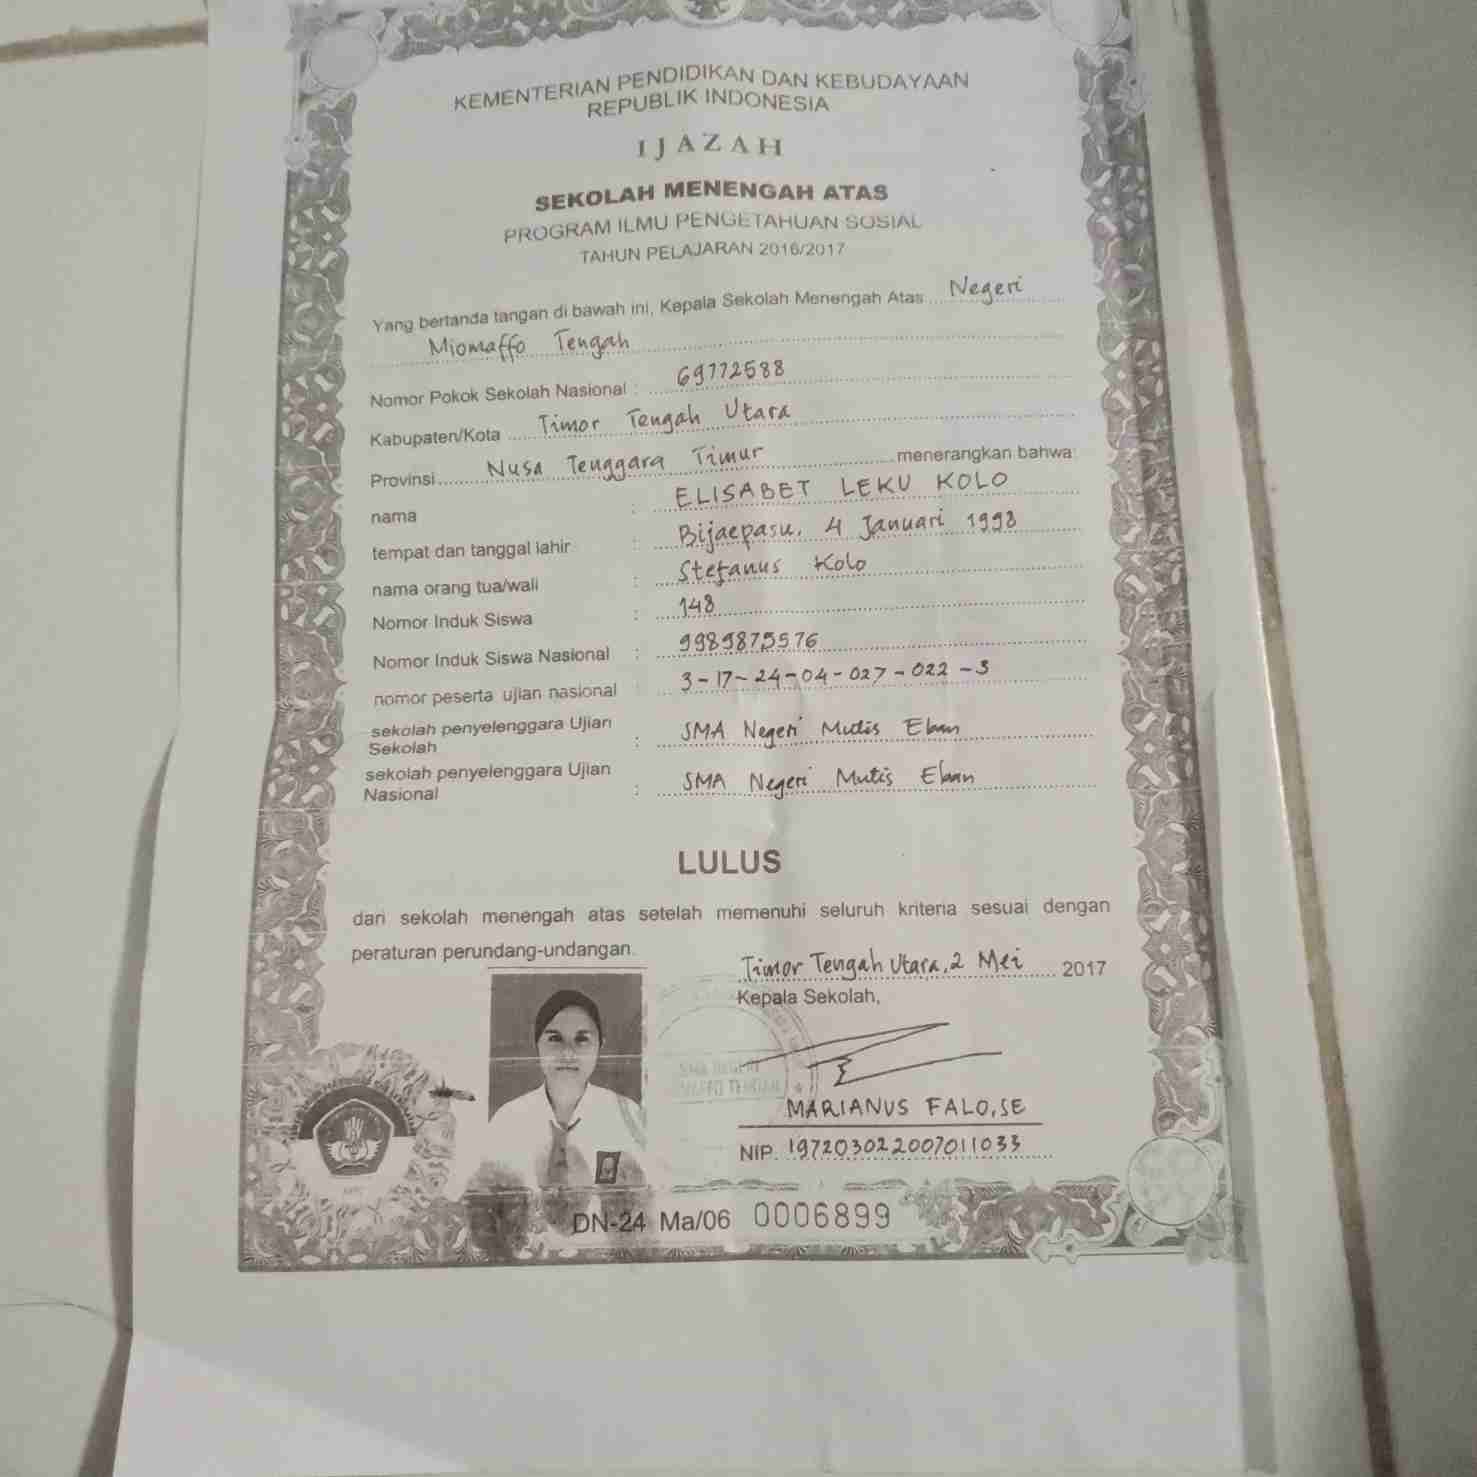 KEMENTERIAN PENDIDIKAN DAN KEBUDAYAAN
REPUBLIK INDONESIA
IJAZAH
SEKOLAH MENENGAH ATAS
PROGRAM ILMU PENGETAHUAN SOSIAL
TAHUN PELAJARAN 2016/2017
Yang bertanda tangan di bawah ini, Kepala Sekolah Menengah Atas Negeri
Miomaffo Tengah
Nomor Pokok Sekolah Nasional : 69772588
Kabupaten/Kota Timor Tengah Utara
Provinsi Nusa Tenggara Timur menerangkan bahwa:
nama : ELISABET LEKU KOLO
tempat dan tanggal lahir : Bijaepasu, 4 Januari 1998
nama orang tua/wali : Stefanus Kolo
Nomor Induk Siswa : 148
Nomor Induk Siswa Nasional : 9989875576
nomor peserta ujian nasional : 3-17-24-04-027-022-3
sekolah penyelenggara Ujian
Sekolah : SMA Negeri Mutis Eban
sekolah penyelenggara Ujian
Nasional : SMA Negeri Mutis Eban
LULUS
dari sekolah menengah atas setelah memenuhi seluruh kriteria sesuai dengan
peraturan perundang-undangan.
Timor Tengah Utara, 2 Mei 2017
Kepala Sekolah,
SMA NEGERI
TENGAH
MARIANUS FALO, SE
NIP. 197203022007011033
DN-24 Ma/06 0006899